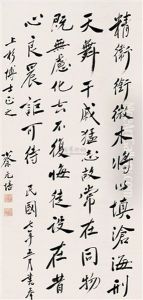 精衛銜微木將以填滄海刑
天舞干戚猛志故常在同物
既無慮化去不復悔徒設在昔
心良晨詎可待 民國年月書奉
上杉博士正之 蔡元培